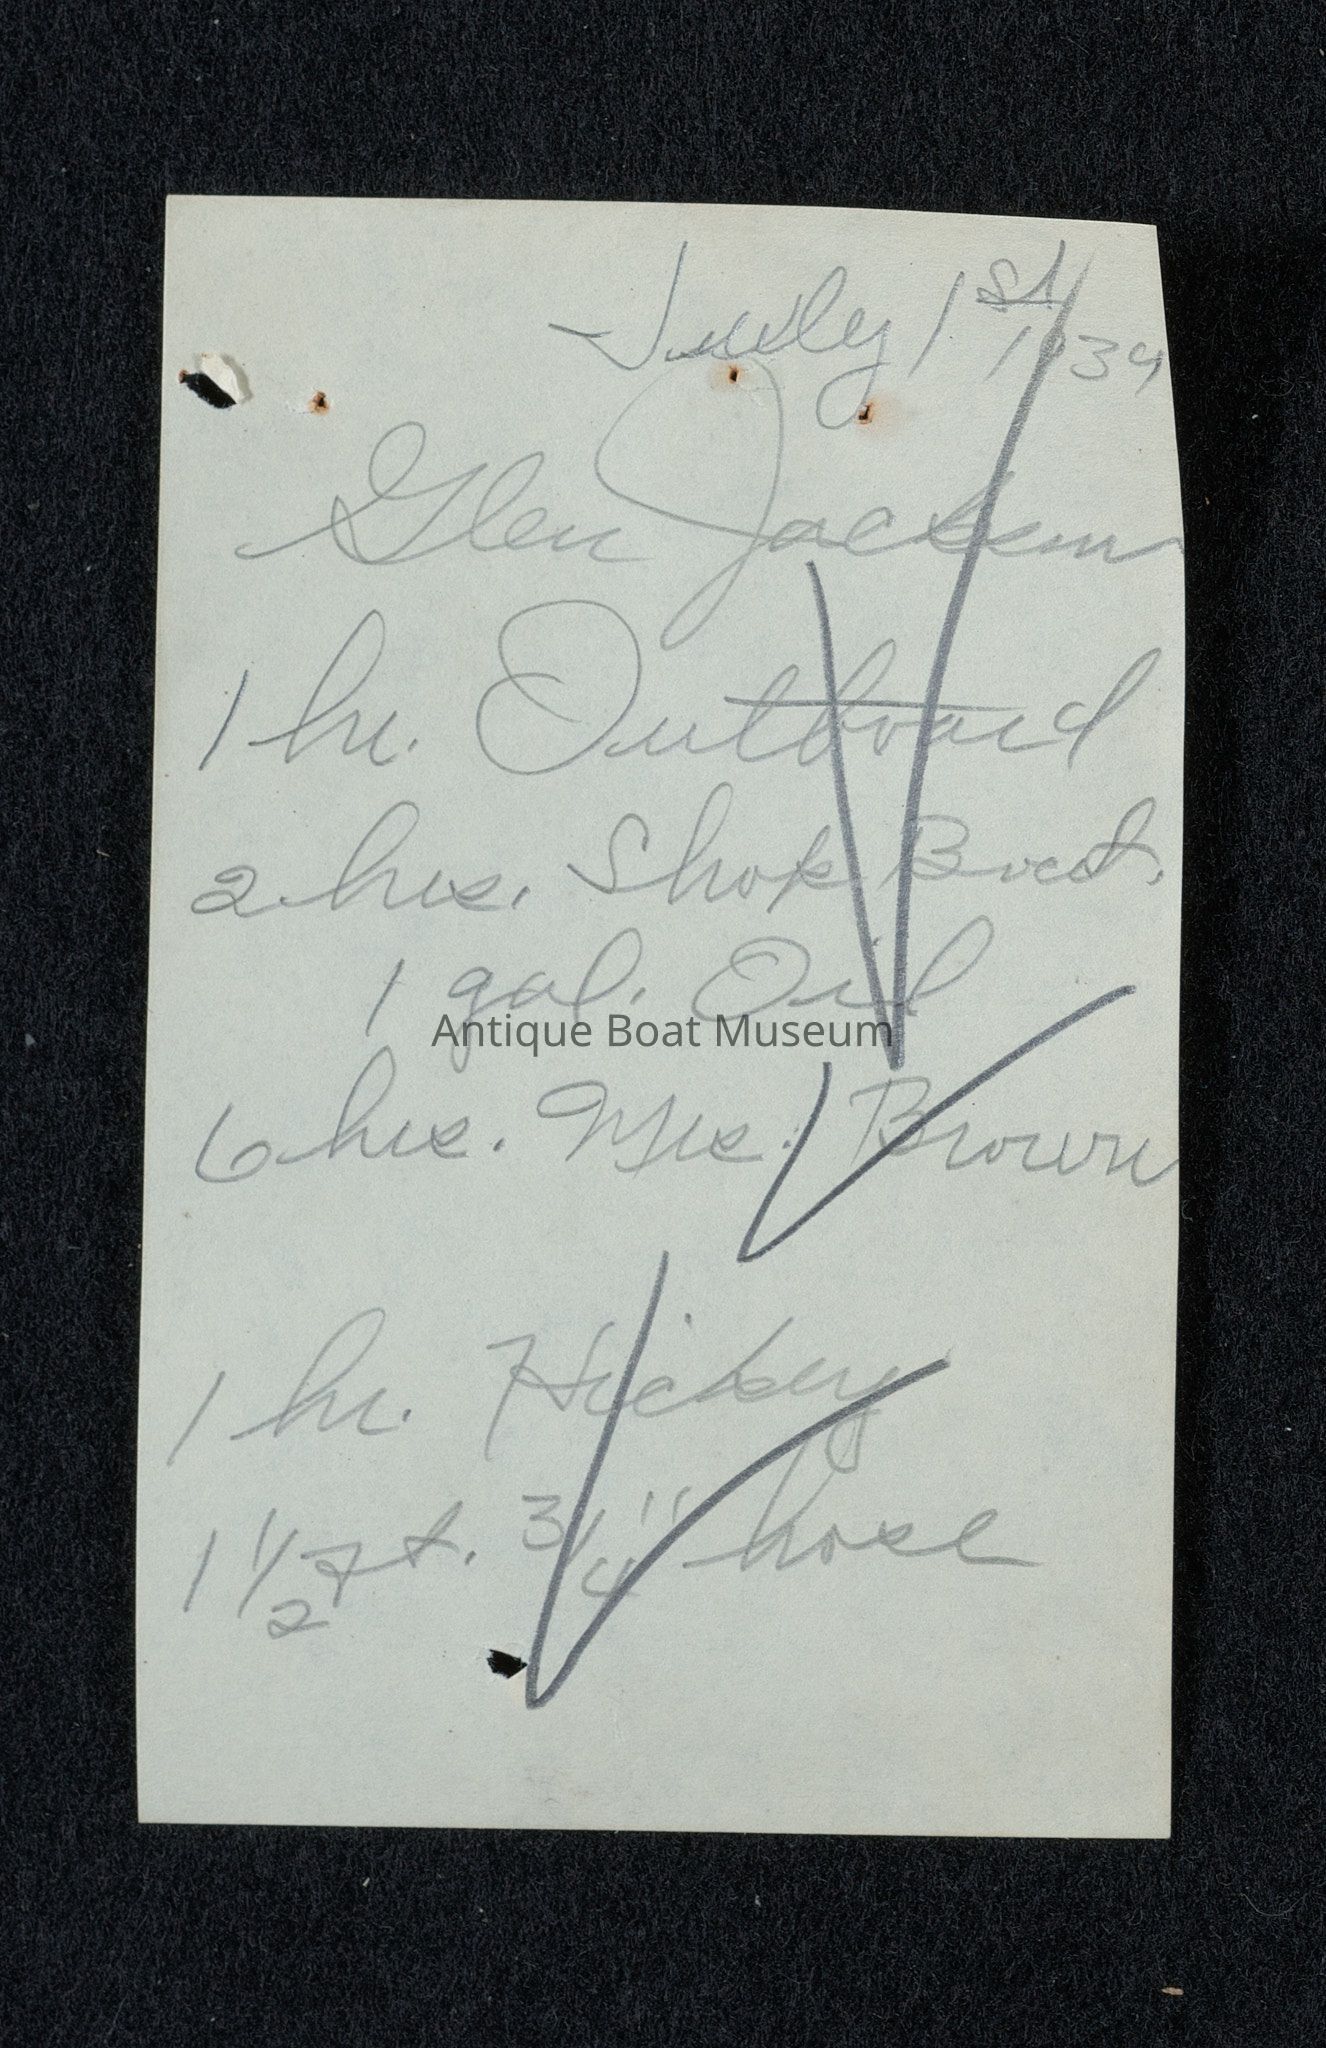 July 1st
1934
Glen Jackson
1 hr. Outboard
2 hrs. Shop Boat.
1 gal. Oil
Antique Boat Museum
6 hrs. Mrs. Brown
1 hr. Hickey
1 1/2 ft. 3/4" hose